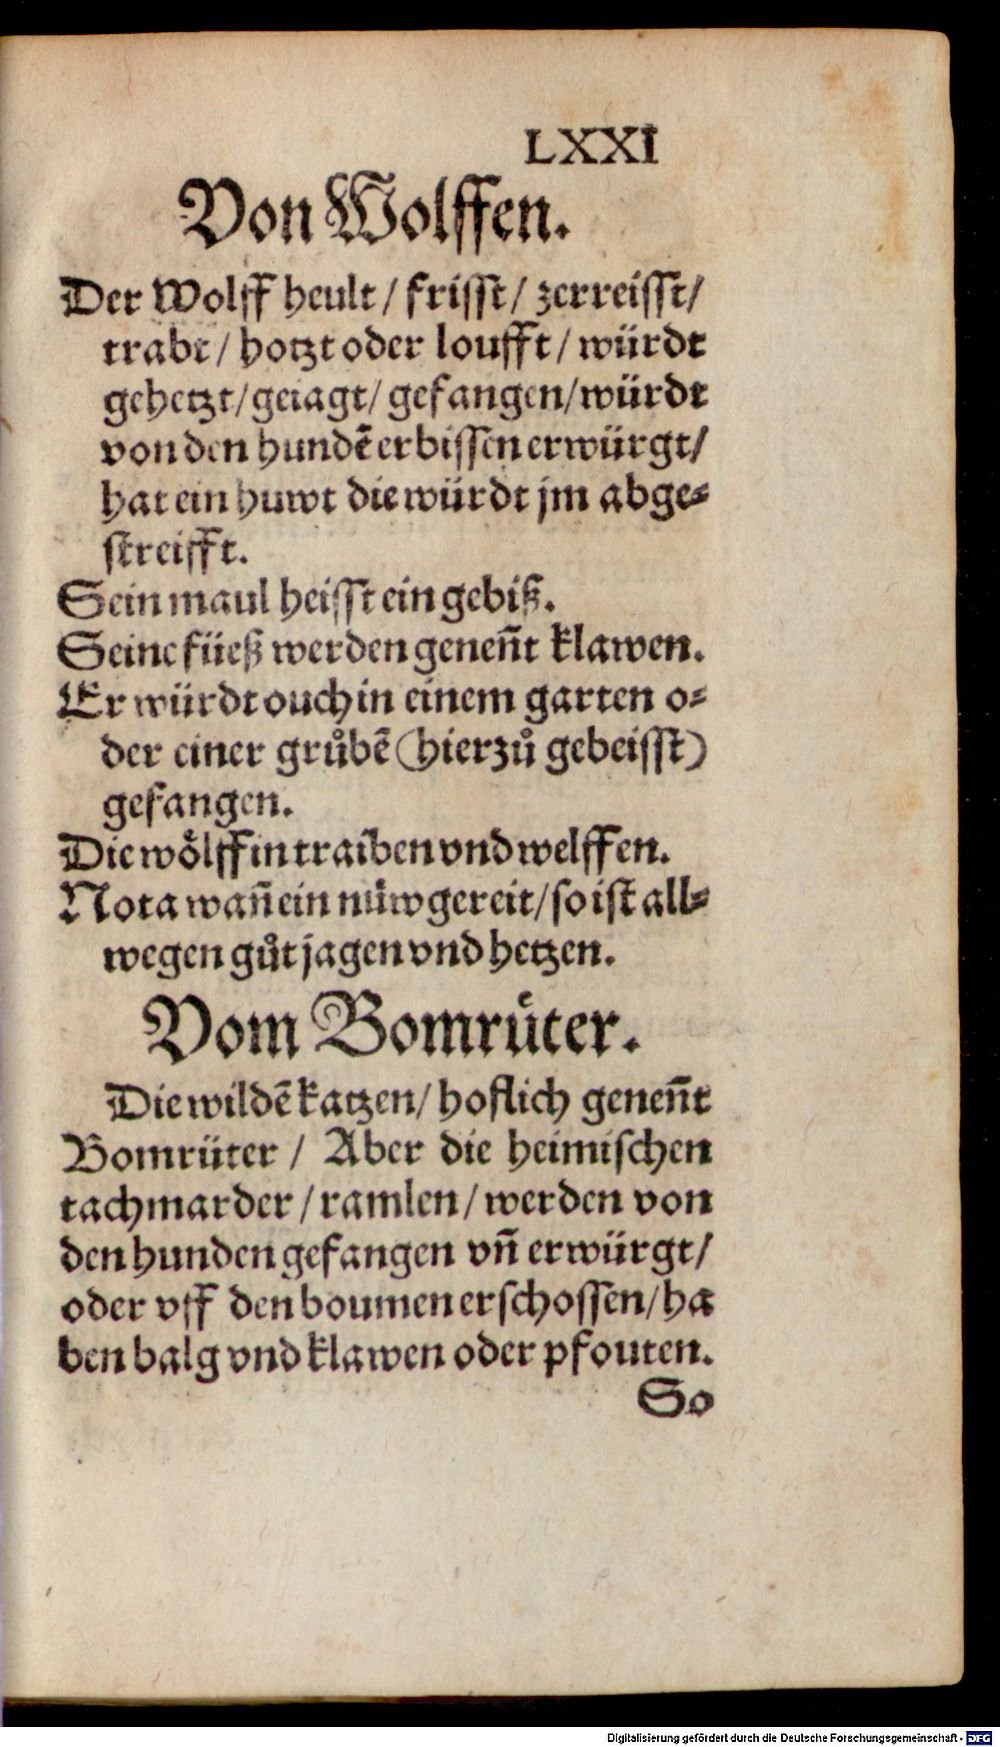 LXXI
Von Wolffen.
Der Wolff heult / frisst / zerreisst /
trabt / hotzt oder loufft / würdt
gehetzt / geiagt / gefangen / würdt
von den hundē erbissen erwürgt /
hat ein huwt die würdt jm abge⸗
streifft.
Sein maul heisst ein gebiß.
Seine füeß werden geneñt klawen.
Er würdt ouch in einem garten o⸗
der einer grůbē (hierzů gebeisst)
gefangen.
Die woͤlffin traiben vnd welffen.
Nota wañ ein nüw gereit / so ist all⸗
wegen gůt jagen vnd hetzen.
Vom Bomruͤter.
Die wildē katzen / hoflich geneñt
Bomrüter / Aber die heimischen
tachmarder / ramlen / werden von
den hunden gefangen vñ erwürgt /
oder vff den boumen erschossen / ha
ben balg vnd klawen oder pfouten.
So
Digitalisierung gefördert durch die Deutsche Forschungsgemeinschaft - DFG